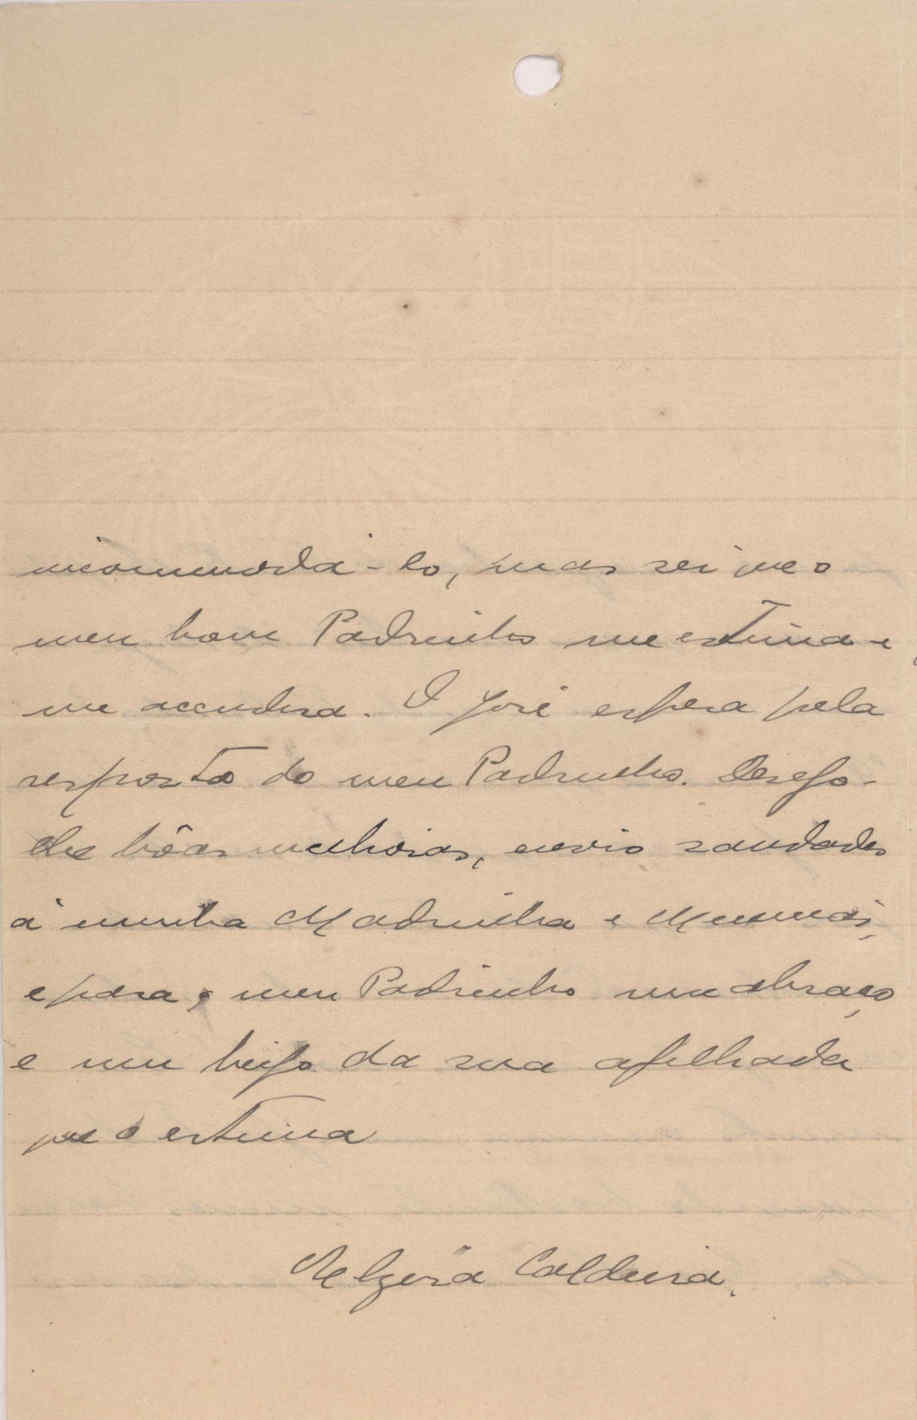 incommodá-lo, mas sei que o
meu bom Padrinho me estima e
me accudira. O José espera pela
resposta do meu Padrinho. Desejo-
lhe bôas melhoras, envio saudades
á minha Madrinha e Meninas,
e para o meu Padrinho um abraço
e um beijo da sua afilhada
que o estima
Caldeira.